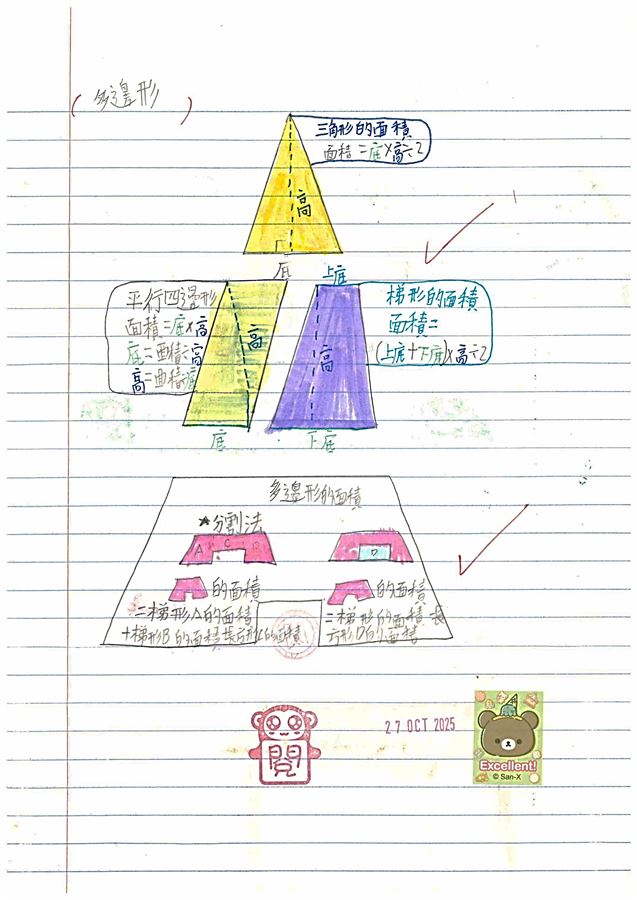 (多邊形)
三角形的面積
面積=底×高÷2
高
底
平行四邊形
面積=底×高
底=面積÷高
高=面積÷底
高
底
上底
高
下底
梯形的面積
面積=
(上底+下底)×高÷2
多邊形的面積
*分割法
A C B
D
的面積
=梯形A的面積
+梯形B的面積
的面積
=梯形的面積
方形D的面積
閱
27 OCT 2025
Excellent!
© San-X